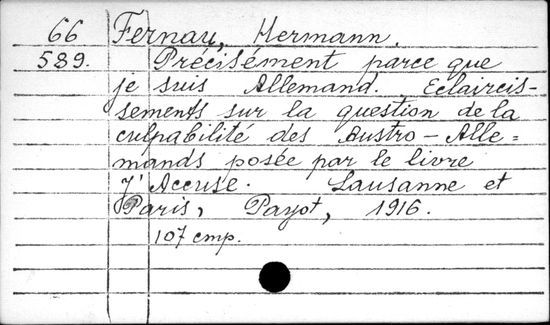 66 Fernau, Hermann.
589. Précisément parce que
je suis Allemand. Eclaircis-
sements sur la question de la
culpabilité des Austro-Alle=
mands posée par le livre
J'Accuse. Lausanne et
Paris, Payot, 1916.
107 стр.